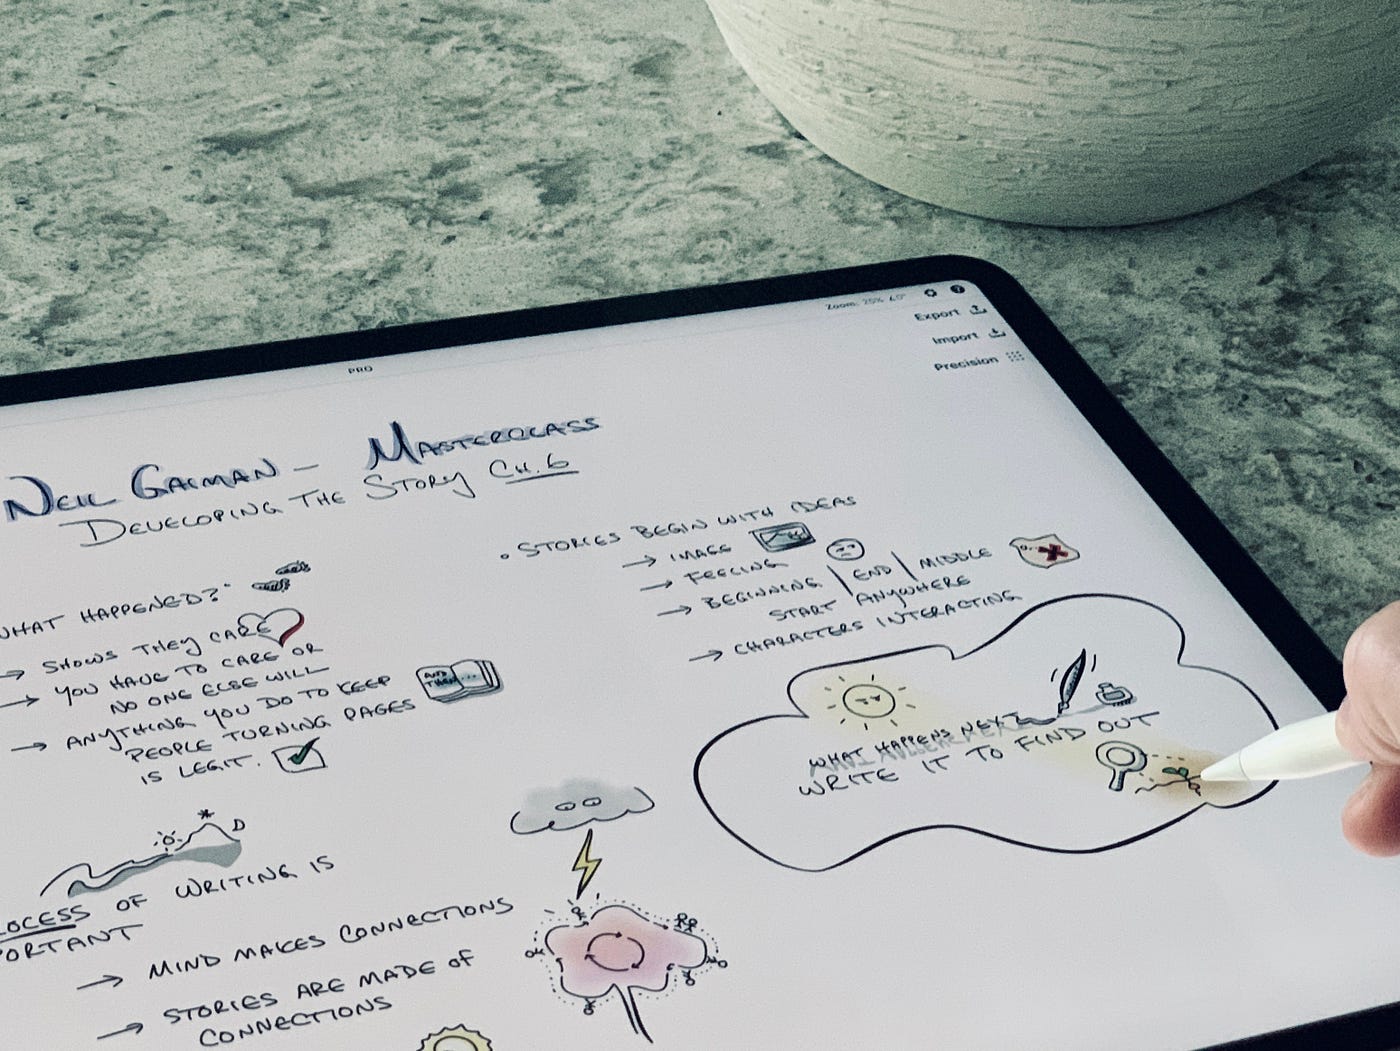 Zoom: 25% ∠0°
Export
Import
Precision
PRO
NEIL GAIMAN – MASTERCLASS
DEVELOPING THE STORY CH. 6
WHAT HAPPENED?"
→ SHOWS THEY CARE
→ YOU HAVE TO CARE OR
NO ONE ELSE WILL
→ ANYTHING YOU DO TO KEEP
PEOPLE TURNING PAGES
IS LEGIT.
AND THEN...
OCESS OF WRITING IS
PORTANT
→ MIND MAKES CONNECTIONS
→ STORIES ARE MADE OF
CONNECTIONS
• STORIES BEGIN WITH IDEAS
→ IMAGE
→ FEELING
→ BEGINNING | END | MIDDLE
START ANYWHERE
→ CHARACTERS INTERACTING
WHAT HAPPENS NEXT
WRITE IT TO FIND OUT